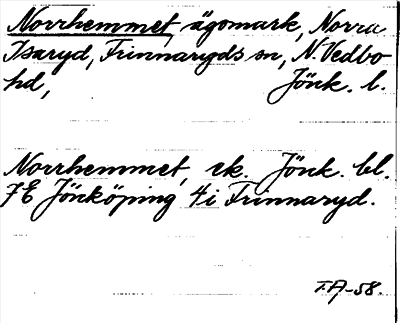 Norrhemmet, ägomark, Norra
Isaryd, Frinnaryds sn, N. Vedbo
hd, Jönk. l.
Norrhemmet, ek. Jönk. bl.
7E Jönköping 4i Frinnaryd.
T.A-58.